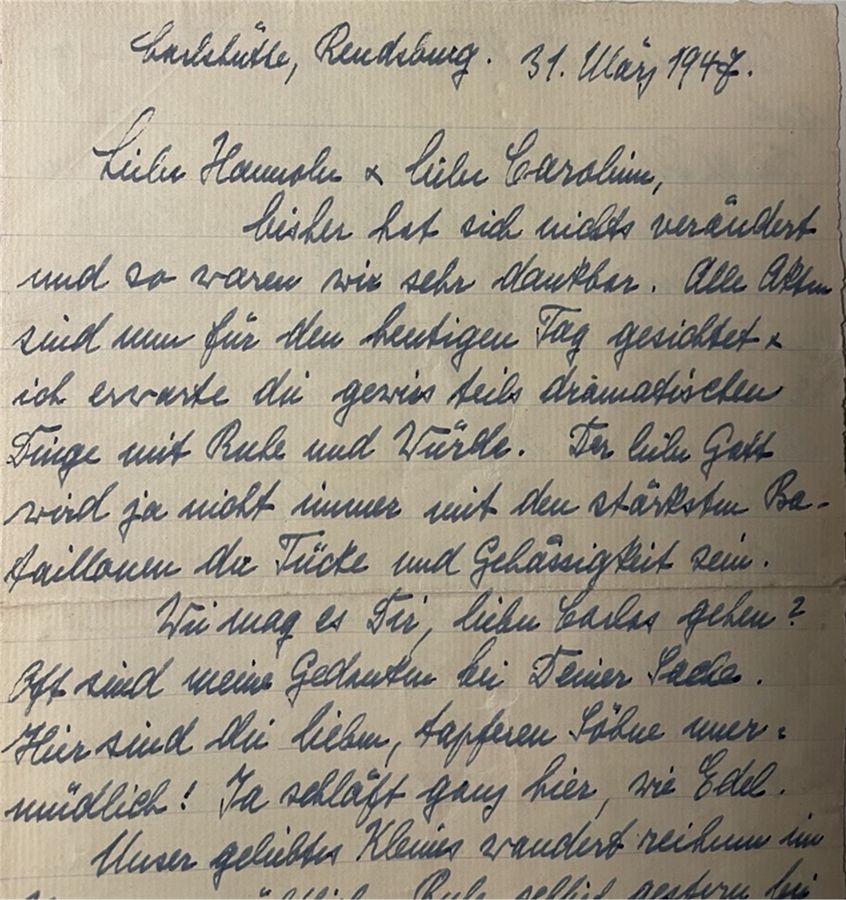 Carlshütte, Rendsburg. 31. März 1947.
Liebe Hannola & liebe Caroline,
bisher hat sich nichts verändert
und so waren wir sehr dankbar. Alle Akten
sind nun für den heutigen Tag gesichtet &
ich erwarte die gewiss teils dramatischen
Dinge mit Ruhe und Würde. Der liebe Gott
wird ja nicht immer mit den stärksten Ba-
taillonen der Tücke und Gehässigkeit sein.
Wie mag es Dir, lieber Carlos gehen?
Oft sind meine Gedanken bei Deiner Sache.
Hier sind die lieben, tapferen Söhne uner-
müdlich! Ja schläft ganz hier, wie Edel.
Unser geliebtes Kleines wandert reihum im
Ruhe schlief gestern bei